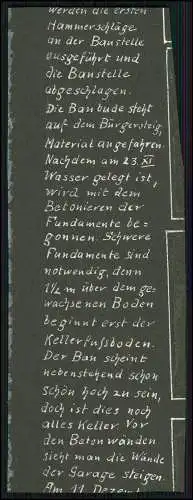 werden die ersten
Hammerschläge
an der Baustelle
ausgeführt und
die Baustelle
abgeschlagen.
Die Baubude steht
auf dem Bürgersteig,
Material angefahren.
Nachdem am 23. XI
Wasser gelegt ist,
wird mit dem
Betonieren der
Fundamente be=
gonnen. Schwere
Fundamente sind
notwendig, denn
1½ m über dem ge=
wachsenen Boden
beginnt erst der
Kellerfußboden.
Der Bau scheint
nebenstehend schon
schön hoch zu sein,
doch ist dies noch
alles Keller. Vor
den Betonwänden
sieht man die Wände
der Garage steigen.
Am 11. Dezem